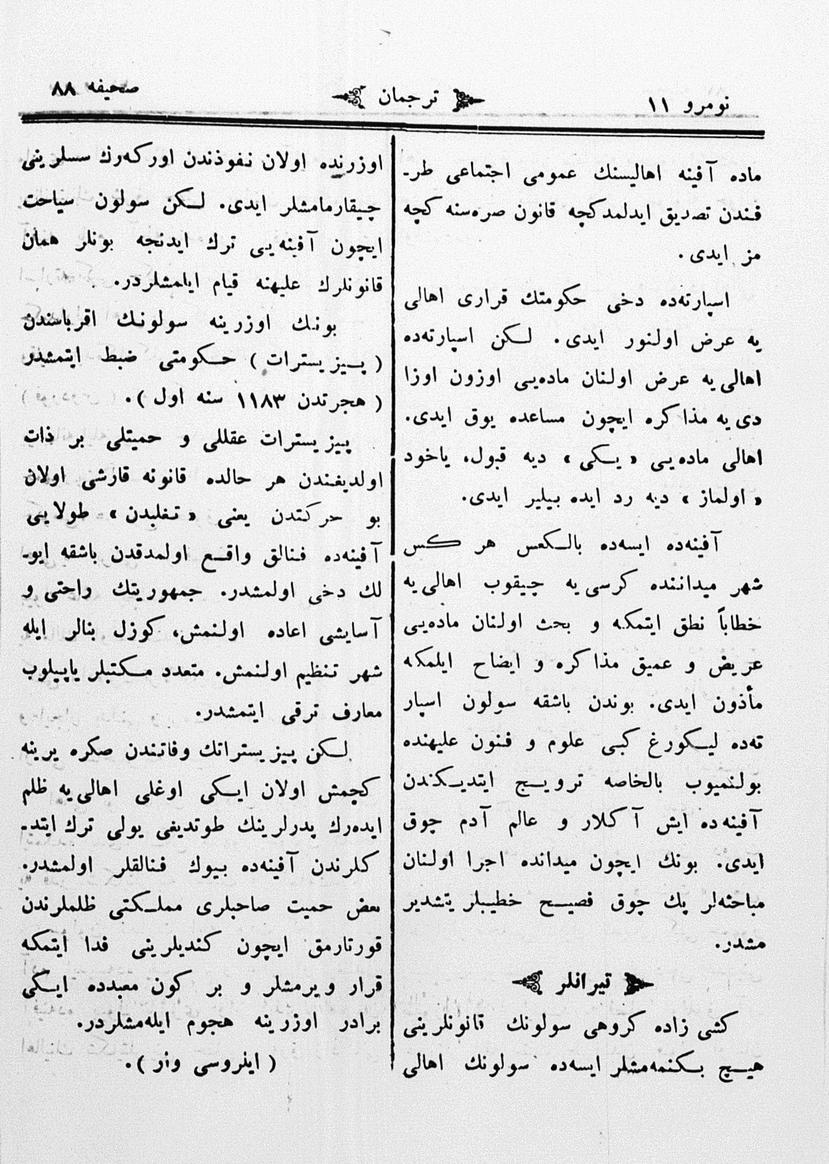 نومرو ۱۱
ترجمان
صحیفه ۸۸
ماده آفینه اهالیسنك عمومی اجتماعی طرـ
فندن تصدیق ایدلمدكچه قانون صره‌سنه كچه
مز ایدی.
اسپارته‌ده دخی حكومتك قراری اهالی
یه عرض اولنور ایدی. لكن اسپارته‌ده
اهالی‌یه عرض اولنان ماده‌یی اوزون اوزا
دی‌یه مذاكره ایچون مساعده یوق ایدی.
اهالی ماده‌یی «یكی» دیه قبول، یاخود
«اولماز» دیه رد ایده بیلیر ایدی.
آفینه‌ده ایسه‌ده بالكعس هر كس
شهر میداننده كرسی‌یه چیقوب اهالی‌یه
خطاباً نطق ایتمكه و بحث اولنان ماده‌یی
عریض و عمیق مذاكره و ایضاح ایلمكه
مأذون ایدی. بوندن باشقه سولون اسپار
ته‌ده لیكورغ كبی علوم و فنون علیهنده
بولنمیوب بالخاصه ترویج ایتدیكندن
آفینه‌ده ایش آكلار و عالم آدم چوق
ایدی. بونك ایچون میدانده اجرا اولنان
مباحثه‌لر پك چوق فصیح خطیبلر یتشدیر
مشدر.
تیرانلر
كشی زاده كروهی سولونك قانونلرینی
هیچ بكنمه‌مشلر ایسه‌ده سولونك اهالی
اوزرنده اولان نفوذندن اوركه‌رك سسلرینی
چیقارمامشلر ایدی. لكن سولون سیاحت
ایچون آفینه‌یی ترك ایدنجه بونلر همان
قانونلرك علیهنه قیام ایلمشلردر.
بونك اوزرینه سولونك اقرباسندن
(پیزیسترات) حكومتی ضبط ایتمشدر
(هجرتدن ۱۱۸۳ سنه اول).
پیزیسترات عقللی و حمیتلی بر ذات
اولدیغندن هر حالده قانونه قارشی اولان
بو حركتدن یعنی «تغلبدن» طولایی
آفینه‌ده فنالق واقع اولمدقدن باشقه ایوـ
لك دخی اولمشدر. جمهوریتك راحتی و
آسایشی اعاده اولنمش، كوزل بنالر ایله
شهر تنظیم اولنمش. متعدد مكتبلر یاپیلوب
معارف ترقی ایتمشدر.
لكن پیزیستراتك وفاتندن صكره یرینه
كچمش اولان ایكی اوغلی اهالی‌یه ظلم
ایده‌رك پدرلرینك طوتدیغی یولی ترك ایتدـ
كلرندن آفینه‌ده بیوك فنالقلر اولمشدر.
بعض حمیت صاحبلری مملكتی ظلملرندن
قورتارمق ایچون كندیلرینی فدا ایتمكه
قرار ویرمشلر و بر كون معبدده ایكی
برادر اوزرینه هجوم ایله‌مشلردر.
(ایلروسی وار).